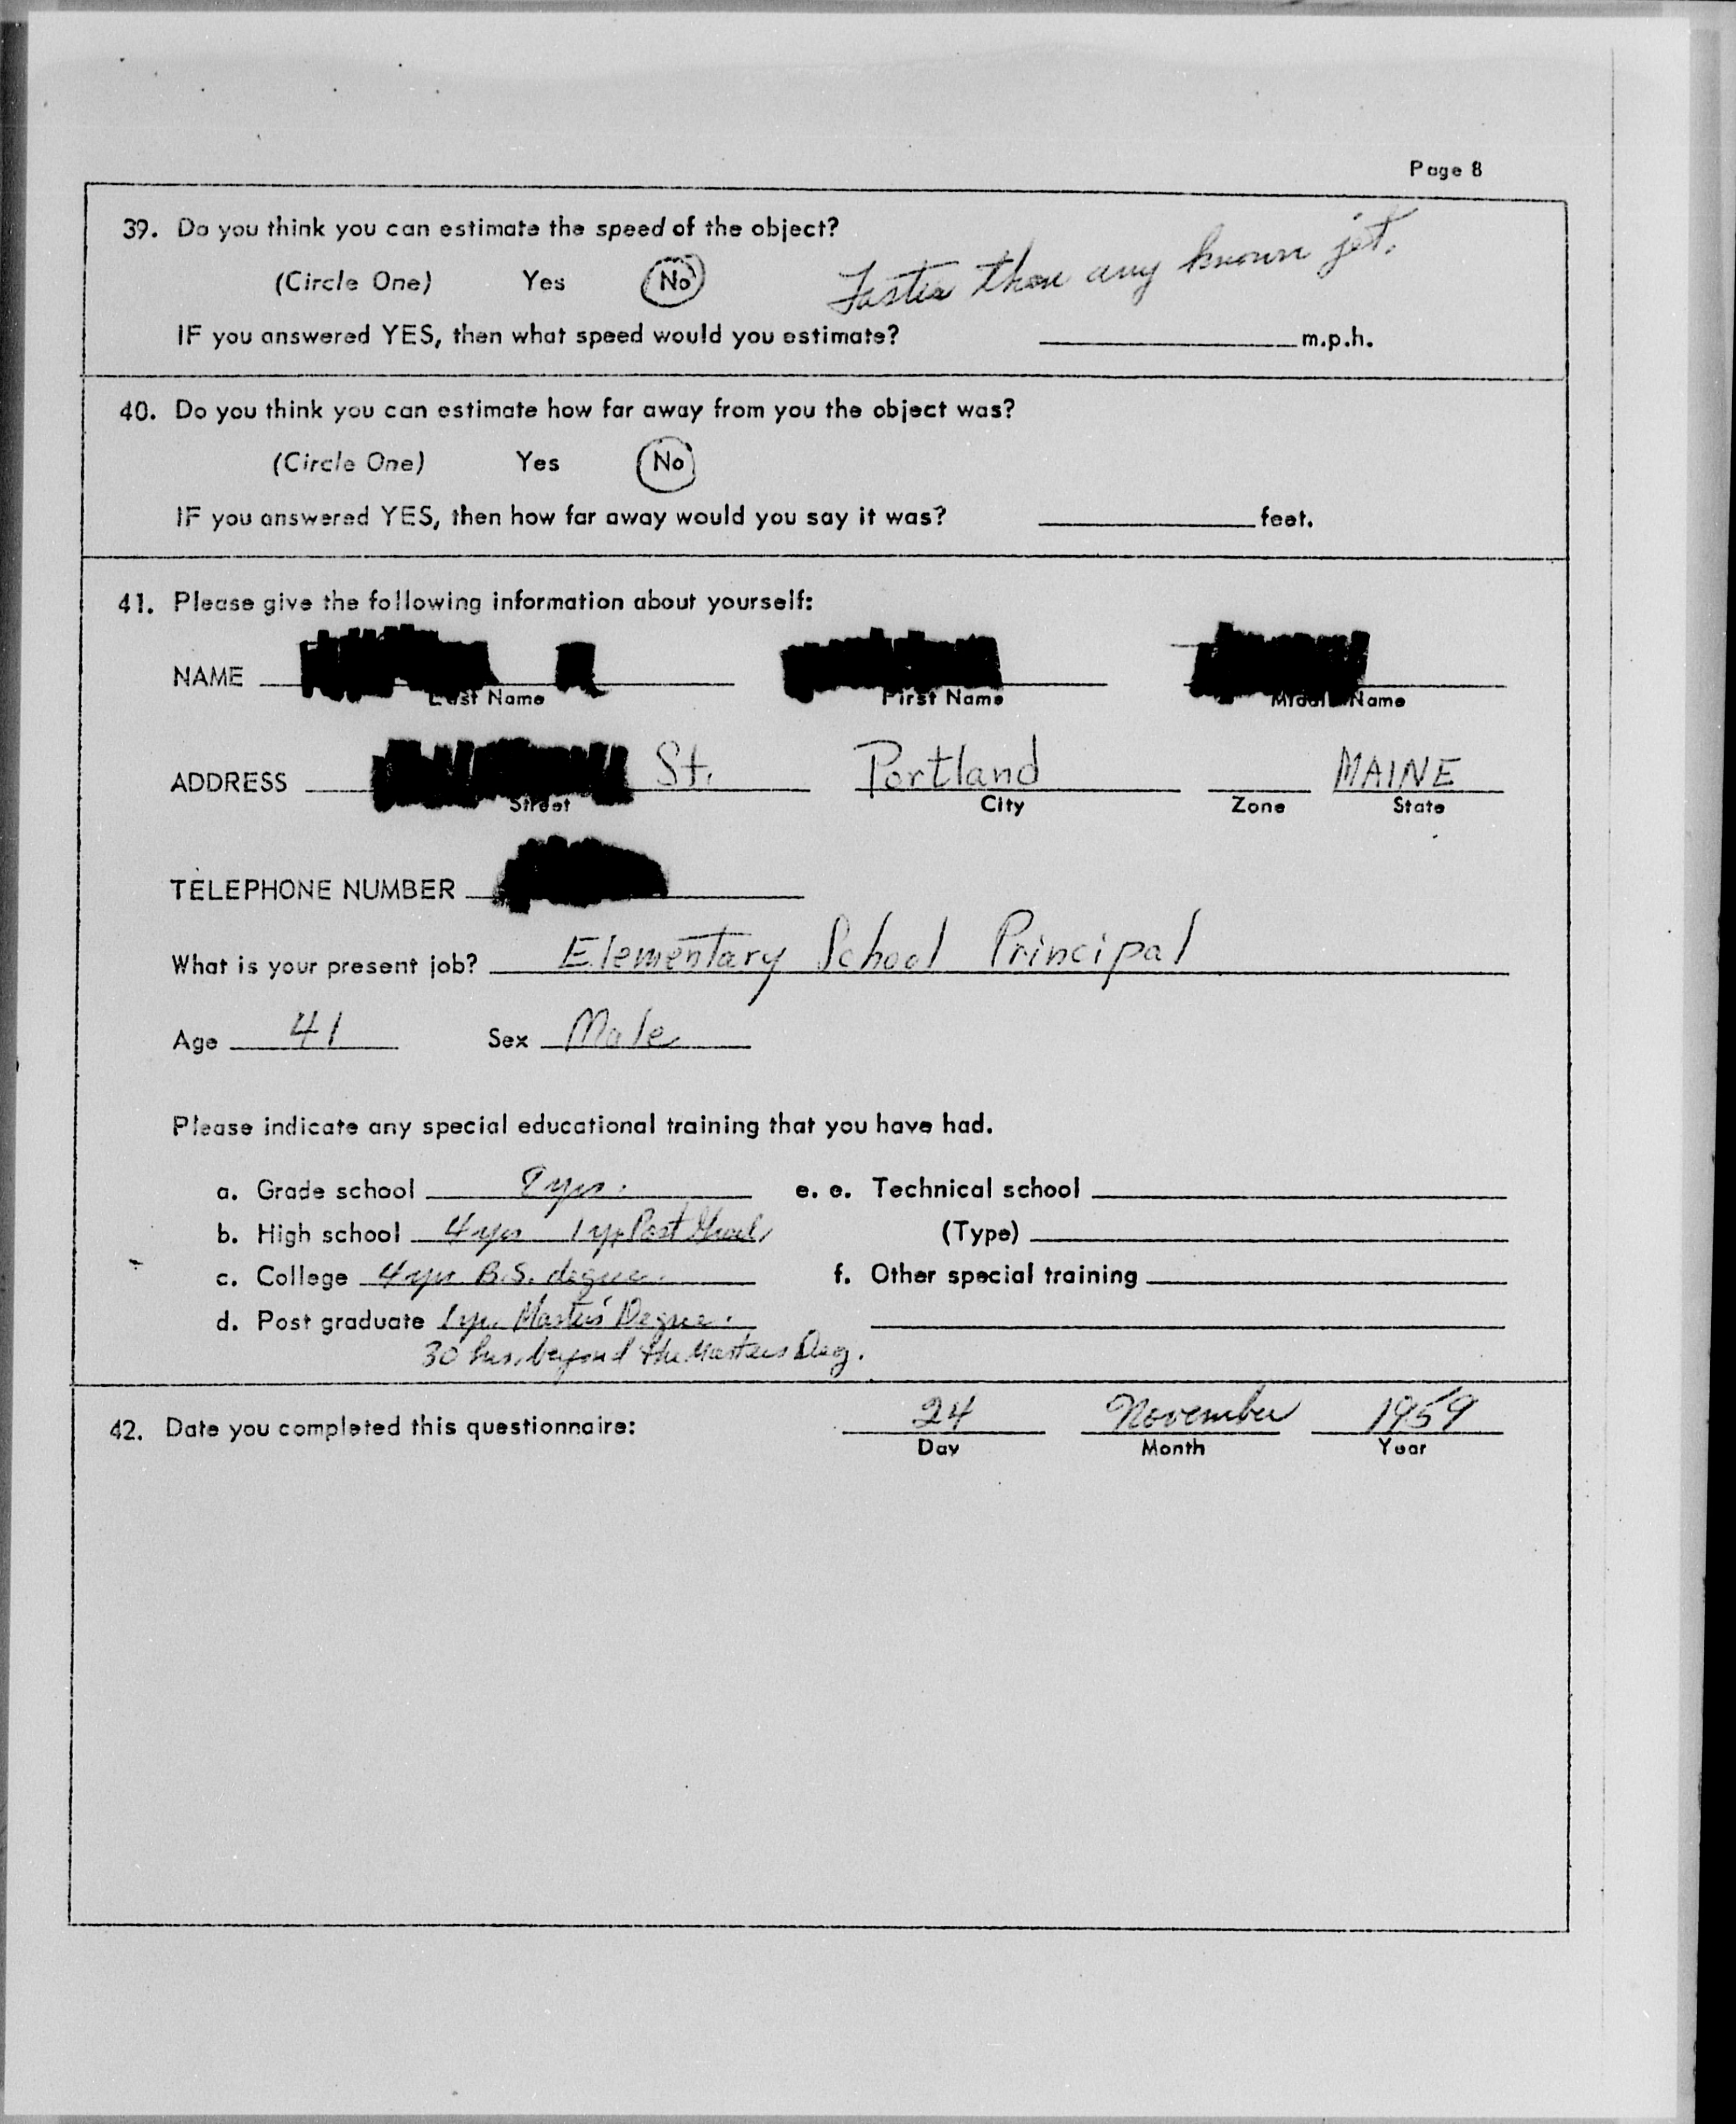 Page 8
39. Do you think you can estimate the speed of the object?
(Circle One) Yes No Faster than any known jet.
IF you answered YES, then what speed would you estimate? m.p.h.
40. Do you think you can estimate how far away from you the object was?
(Circle One) Yes No
IF you answered YES, then how far away would you say it was? feet.
41. Please give the following information about yourself:
NAME
Last Name First Name Middle Name
ADDRESS St. Portland MAINE
Street City Zone State
TELEPHONE NUMBER
What is your present job? Elementary School Principal
Age 41 Sex Male
Please indicate any special educational training that you have had.
a. Grade school yrs. e. e. Technical school
b. High school 4 yrs 1 yr Post Grad. (Type)
c. College 4 yrs B.S. degree. f. Other special training
d. Post graduate 1 yr. Master's Degree.
30 hrs. beyond the Masters Deg.
42. Date you completed this questionnaire: 24 November 1959
Day Month Year